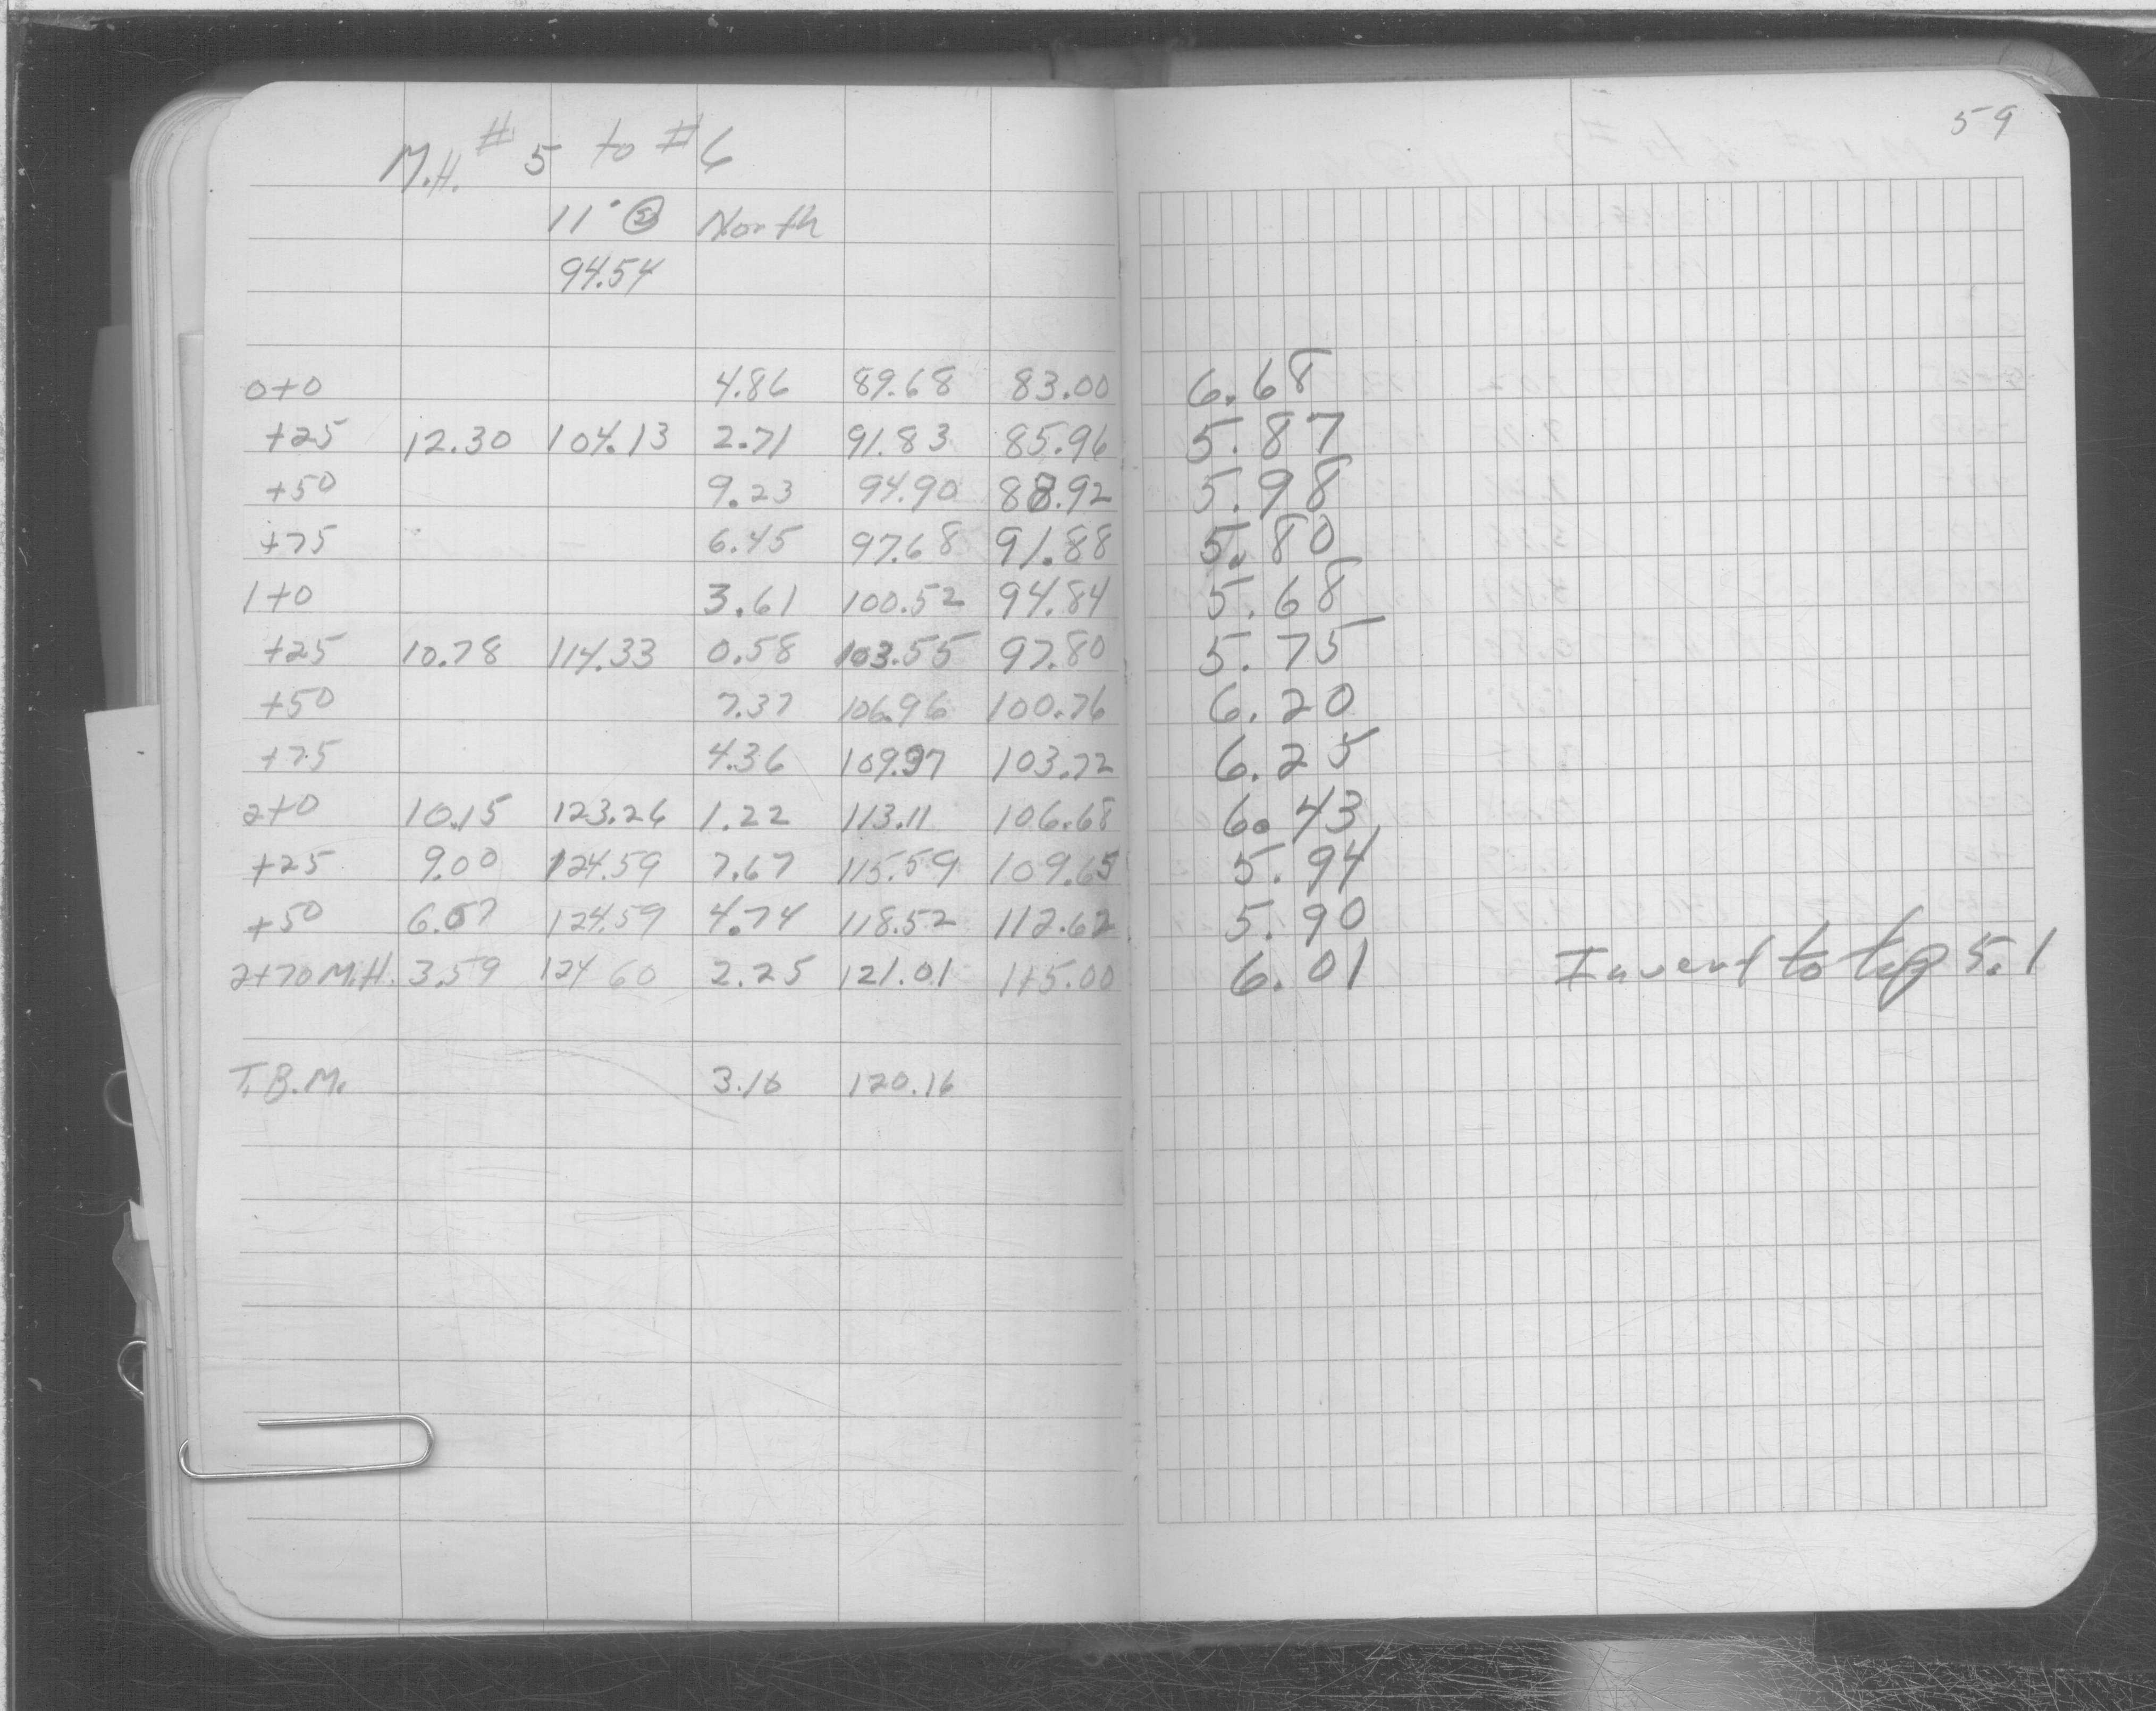 59
M.H. #5 to #6
11° @ North
94.54
0+0 4.86 89.68 83.00 6.68
+25 12.30 104.13 2.71 91.83 85.96 5.87
+50 9.23 94.90 88.92 5.98
+75 6.45 97.68 91.88 5.80
1+0 3.61 100.52 94.84 5.68
+25 10.78 114.33 0.58 103.55 97.80 5.75
+50 7.37 106.96 100.76 6.20
+75 4.36 109.97 103.72 6.25
2+0 10.15 123.26 1.22 113.11 106.68 6.43
+25 9.00 124.59 7.67 115.59 109.65 5.94
+50 6.07 124.59 4.74 118.52 112.62 5.90
2+70 M.H. 3.59 124.60 2.25 121.01 115.00 6.01 Invert to top 5.1
T.B.M. 3.10 120.16